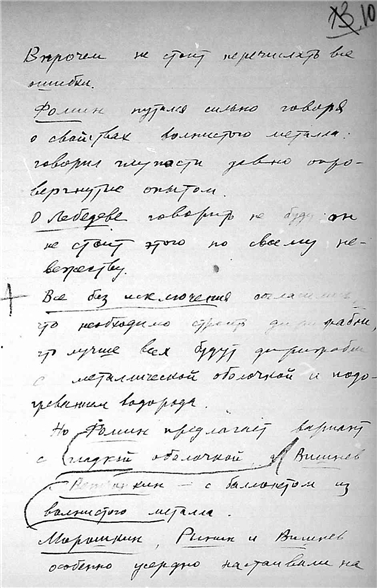 10
Впрочем не стоит перечислять все
ошибки.
Фомин путался сильно говоря
о свойствах волнистого металла:
говорил глупости давно опро-
вергнутые опытом.
О Лебедеве говорить не буду он
не стоит этого по своему не-
вежеству.
+ Все без исключения согласились,
что необходимо строить дирижабли,
что лучше всех будут дирижабли
с металлической оболочкой и подо-
греванием водорода.
Но Фомин предлагает вариант
с гладкой оболочкой, а Вишнев
кин — с баллонетом из
волнистого металла.
Морошкин, Рынин и Вишнев
особенно усердно настаивали на